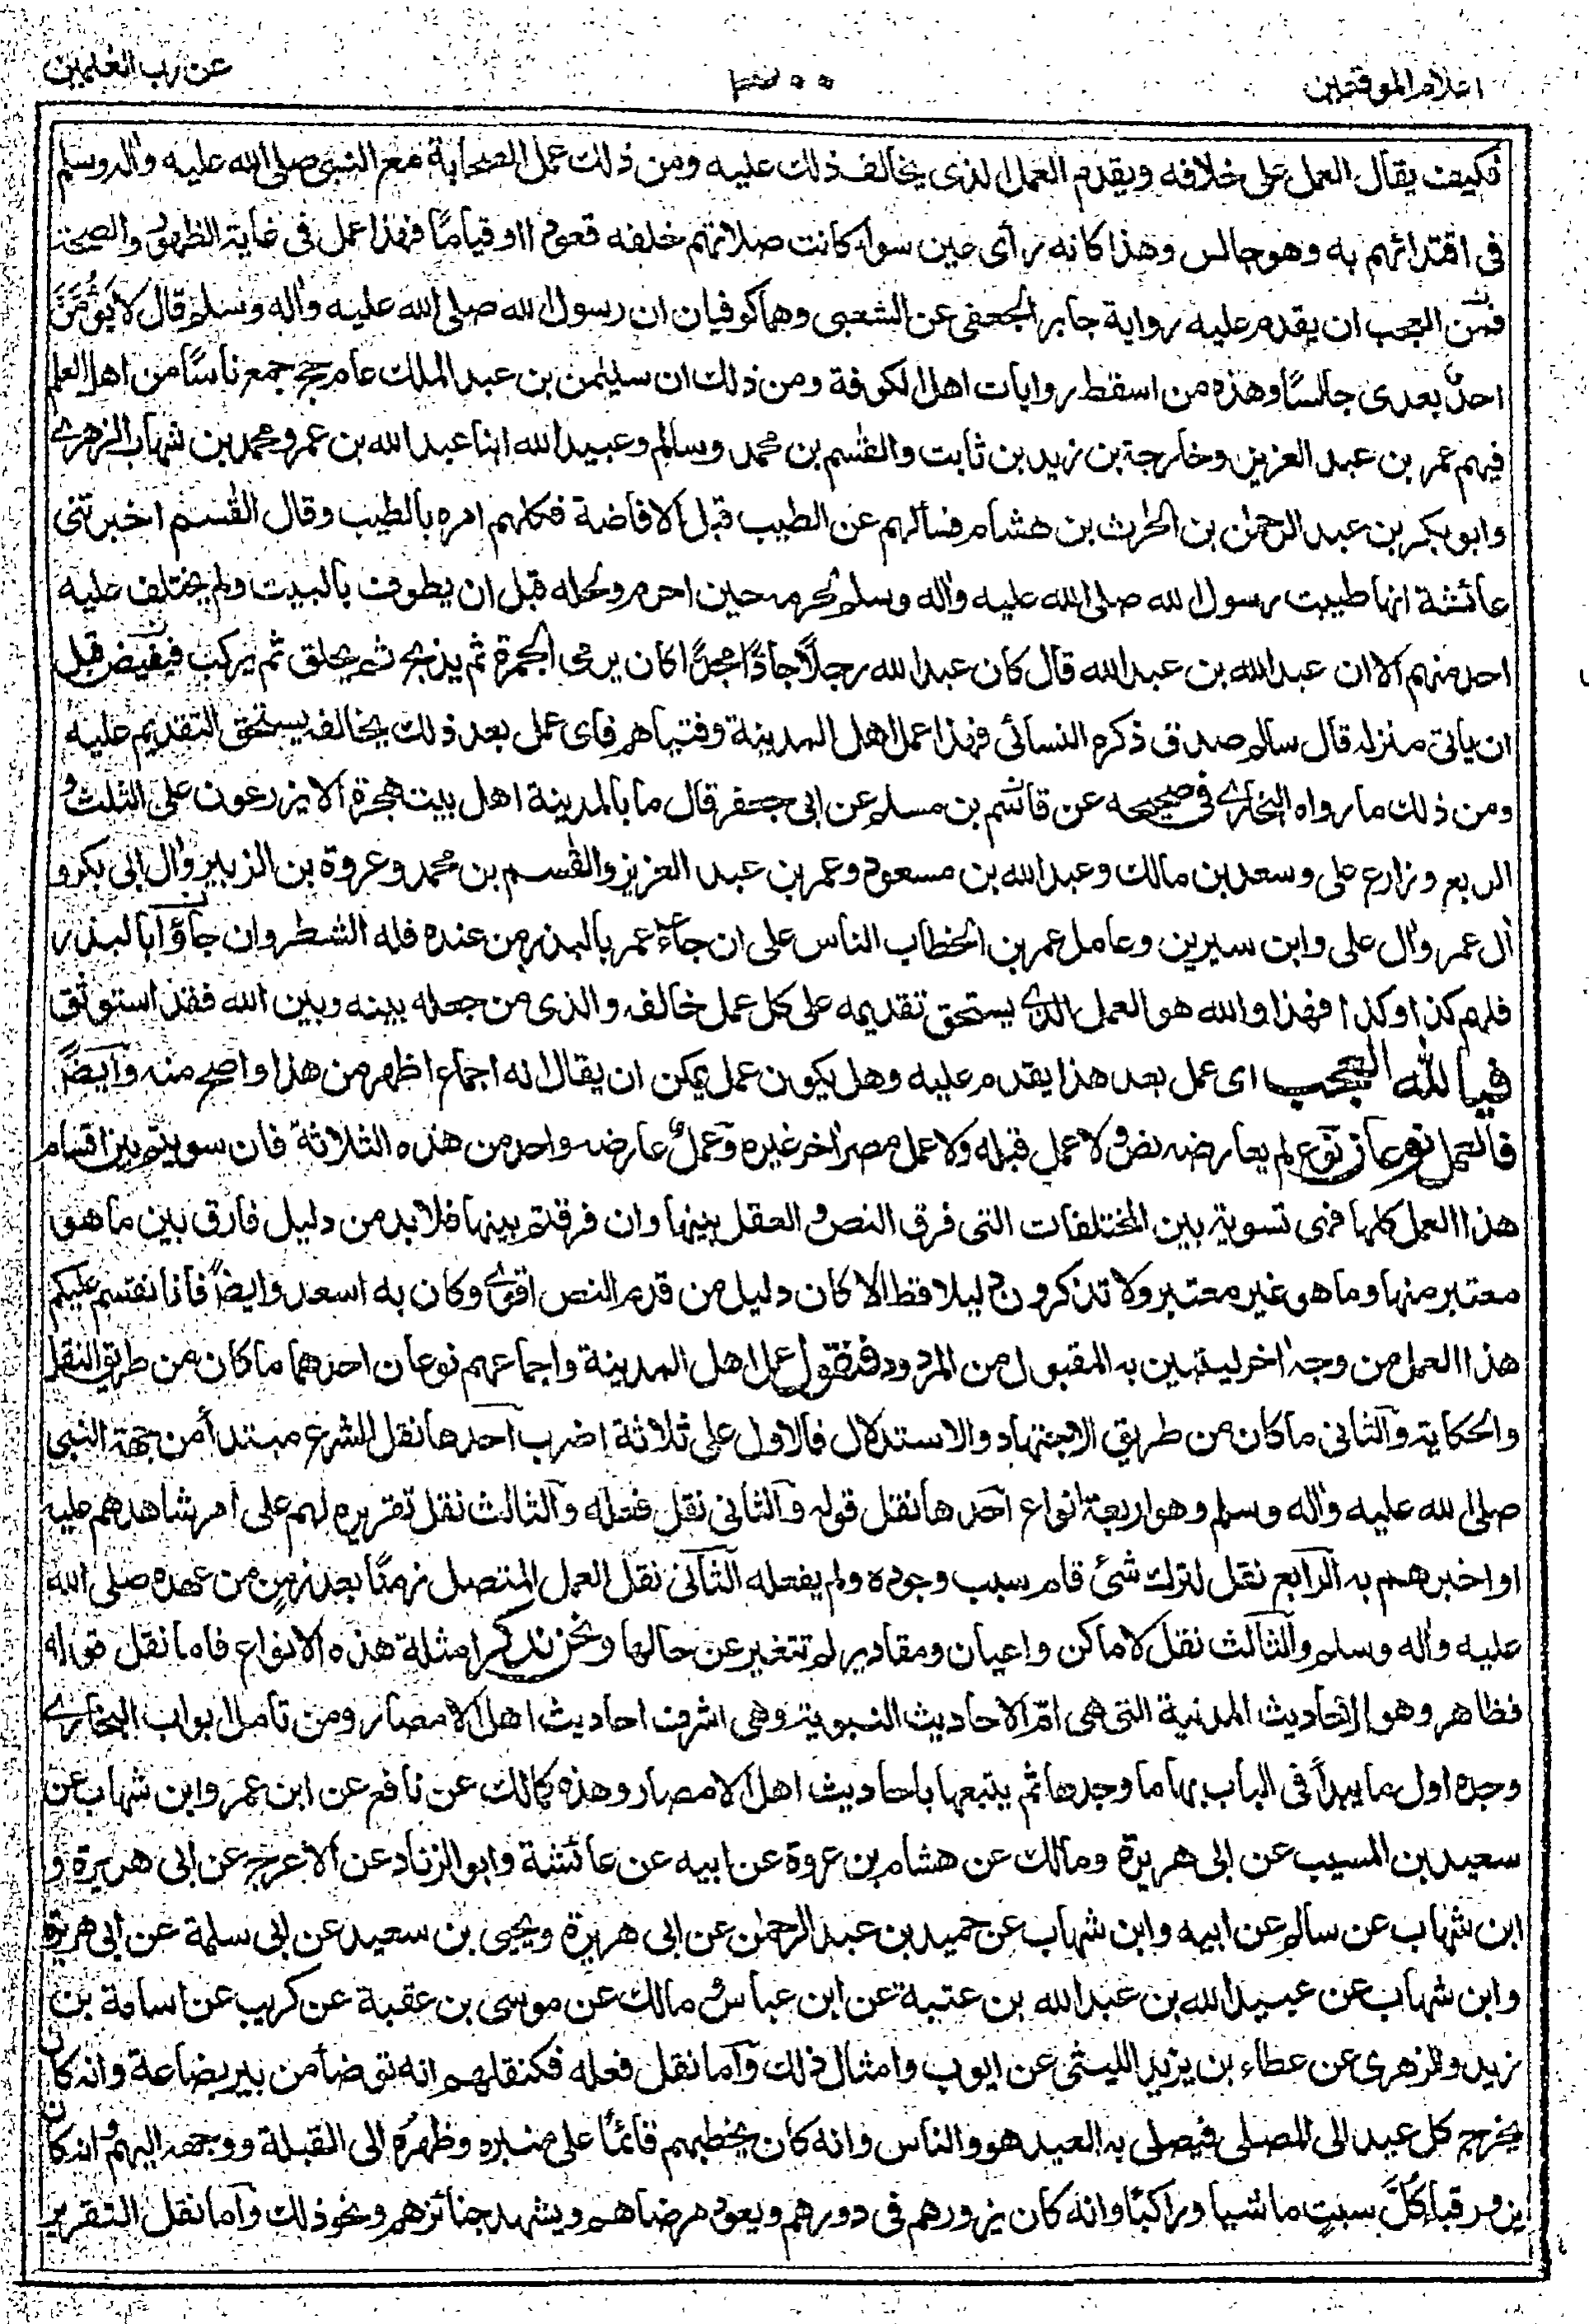 اعلام الموقعين
عن رب العلمين
فكيف يقال العمل على خلافه ويقدم العمل الذى يخالف ذلك عليه ومن ذلك عمل الصحابة مع النبى صلى الله عليه واله وسلم
فى اقتدائهم به وهو جالس وهذا كانه رأى عين سواء كانت صلاتهم خلفه قعودا او قياما فهذا عمل فى غاية الظهور والصحة
فمن العجب ان يقدم عليه رواية جابر الجعفى عن الشعبى وهما كوفيان ان رسول الله صلى الله عليه واله وسلم قال لا يَؤُمَّنَّ
احدٌ بعدى جالسًا وهذه من اسقط روايات اهل الكوفة ومن ذلك ان سليمن بن عبد الملك عام حج جمع ناسًا من اهل العلم
فيهم عمر بن عبد العزيز وخارجة بن زيد بن ثابت والقسم بن محمد وسالم وعبيد الله ابنا عبد الله بن عمر ومحمد بن شهاب الزهرى
وابو بكر بن عبد الرحمن بن الحرث بن هشام فسألهم عن الطيب قبل الافاضة فكلهم امره بالطيب وقال القسم اخبرتنى
عائشة انها طيبت رسول الله صلى الله عليه واله وسلم لحرمه حين احرم ولحله قبل ان يطوف بالبيت ولم يختلف عليه
احد منهم الا ان عبد الله بن عبد الله قال كان عبد الله رجلًا جادًا مجدًّا كان يرمى الجمرة ثم يذبح ثم يحلق ثم يركب فيفيض قبل
ان ياتى منزله قال سالم صدق ذكره النسائى فهذا عمل اهل المدينة وفتياهم فاى عمل بعد ذلك يخالفه يستحق التقديم عليه
ومن ذلك ما رواه البخارى فى صحيحه عن قائسم بن مسلم عن ابى جعفر قال ما بالمدينة اهل بيت هجرة الا يزرعون على الثلث و
الربع وزارع على وسعد بن مالك وعبد الله بن مسعود وعمر بن عبد العزيز والقسم بن محمد وعروة بن الزبير وال ابى بكر و
ال عمر وال على وابن سيرين وعامل عمر بن الخطاب الناس على ان جاء عمر بالبذر من عنده فله الشطر وان جاؤا بالبذر
فلهم كذا وكذا فهذا والله هو العمل الذى يستحق تقديمه على كل عمل خالفه والذى من جعله بينه وبين الله فقد استوثق
فيا لله العجب اى عمل بعد هذا يقدم عليه وهل يكون عمل يمكن ان يقال انه اجماع اظهر من هذا واصح منه وايضًا
فالعمل نوعان نوع لم يعارضه نص ولا عمل قبله ولا عمل مصر اخر غيره وعملٌ عارضه واحد من هذه الثلاثة فان سويتم بين اقسام
هذا العمل كلها فهى تسوية بين المختلفات التى فرق النص والعقل بينها وان فرقتم بينها فلا بد من دليل فارق بين ما هو
معتبر منها وما هو غير معتبر ولا تذكرون دليلا قط الا كان دليل من قدم النص اقوى وكان به اسعد وايضًا فانا نقسم عليكم
هذا العمل من وجه اخر ليتبين به المقبول من المردود فنقول عمل اهل المدينة واجماعهم نوعان احدهما ما كان من طريق النقل
والحكاية والثانى ما كان من طريق الاجتهاد والاستدلال فالاول على ثلاثة اضرب احدها نقل الشرع مبتدأ من جهة النبى
صلى الله عليه واله وسلم وهو اربعة انواع احدها نقل قوله والثانى نقل فعله والثالث نقل تقريره لهم على امر شاهدهم عليه
او اخبرهم به الرابع نقل لترك شئ قام سبب وجوده ولم يفعله الثانى نقل العمل المتصل زمنًا بعد زمنٍ من عهده صلى الله
عليه واله وسلم والثالث نقل لاماكن واعيان ومقادير لم تتغير عن حالها ونحن نذكر امثلة هذه الانواع فاما نقل قوله
فظاهر وهو الاحاديث المدنية التى هى امّ الاحاديث النبوية وهى اشرف احاديث اهل الامصار ومن تامل ابواب البخارى
وجده اول ما يبدأ فى الباب بها ما وجدها ثم يتبعها باحاديث اهل الامصار وهذه كمالك عن نافع عن ابن عمر وابن شهاب عن
سعيد بن المسيب عن ابى هريرة ومالك عن هشام بن عروة عن ابيه عن عائشة وابو الزناد عن الاعرج عن ابى هريرة و
ابن شهاب عن سالم عن ابيه وابن شهاب عن حميد بن عبد الرحمن عن ابى هريرة ويحيى بن سعيد عن ابى سلمة عن ابى هريرة
وابن شهاب عن عبيد الله بن عبد الله بن عتبة عن ابن عباس ومالك عن موسى بن عقبة عن كريب عن اسامة بن
زيد والزهرى عن عطاء بن يزيد الليثى عن ايوب وامثال ذلك واما نقل فعله فكنقلهم انه توضأ من بير بضاعة وانه كان
يخرج كل عيد الى المصلى فيصلى به العيد هو والناس وانه كان يخطبهم قائمًا على منبره وظهره الى القبلة ووجهه اليهم وانه كان
يزور قباء كلَّ سبتٍ ماشيا وراكبًا وانه كان يزورهم فى دورهم ويعود مرضاهم ويشهد جنائزهم ونحو ذلك واما نقل التقرير